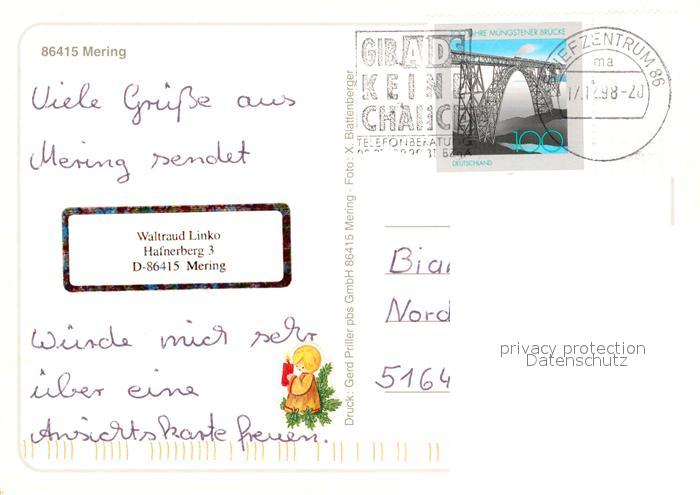 86415 Mering
Viele Grüße aus
Mering sendet
Waltraud Linko
Hafnerberg 3
D-86415 Mering
Würde mich sehr
über eine
Ansichtskarte freuen.
Druck: Gerd Priller pbs GmbH 86415 Mering · Foto: X. Blattenberger
GIB AIDS
KEINE
CHANCE
TELEFONBERATUNG
JAHRE MÜNGSTENER BRÜCKE
100
DEUTSCHLAND
BRIEFZENTRUM 86
ma
17.12.98-20
Bia
Nord
5164
privacy protection
Datenschutz